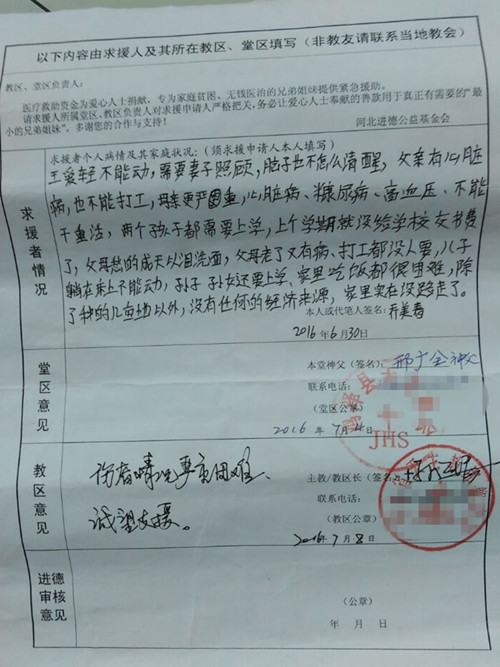 以下内容由求援人及其所在教区、堂区填写（非教友请联系当地教会）
教区、堂区负责人：
医疗救助资金为爱心人士捐献，专为家庭贫困、无钱医治的兄弟姐妹提供紧急援助。
请求援人所属堂区、教区负责人对求援申请人严格把关，务必让爱心人士奉献的善款用于真正有需要的“最
小的兄弟姐妹”。多谢您的合作与支持！
河北进德公益基金会
求援者情况
求援者个人病情及其家庭状况：（须求援申请人本人填写）
不能动，需要妻子照顾，脑子也不怎么清醒，父亲有心脏
病，也不能打工，母亲更严重，心脏病、糖尿病、高血压、不能
干重活，两个孩子都需要上学，上个学期就没给学校交书费
了，父母愁的成天以泪洗面，父母老了又有病、打工都没人要，儿子
躺在床上不能动，孙子孙女还要上学、家里吃饭都很困难，除
了种的几亩地以外，没有任何的经济来源，家里实在没路走了。
本人或代笔人签名：
2016年6月30日
堂区意见
本堂神父（签名）：
联系电话：
（堂区公章）
2016年7月4日
JHS
教区意见
伤者情况严重困难、
诚望支援。
主教/教区长（签名）：
联系电话：
（教区公章）
2016年7月8日
进德审核意见
（公章）
年 月 日